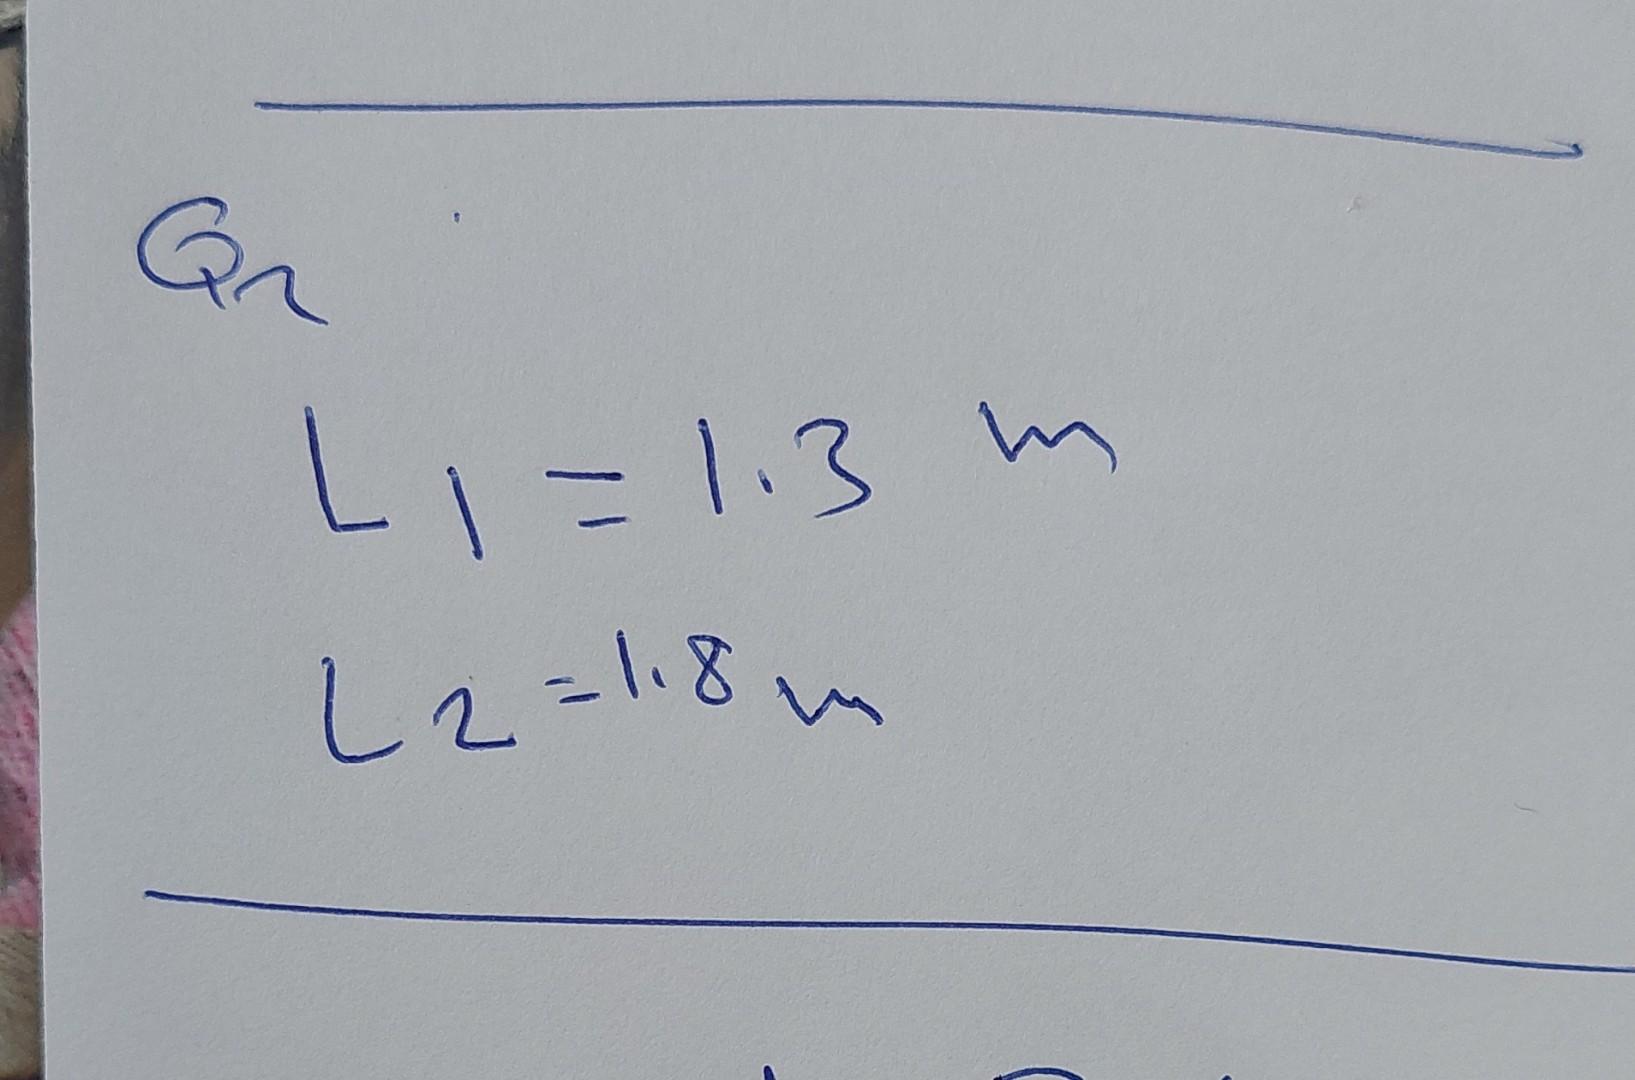 Q2
L1 = 1.3 m
L2 = 1.8 m